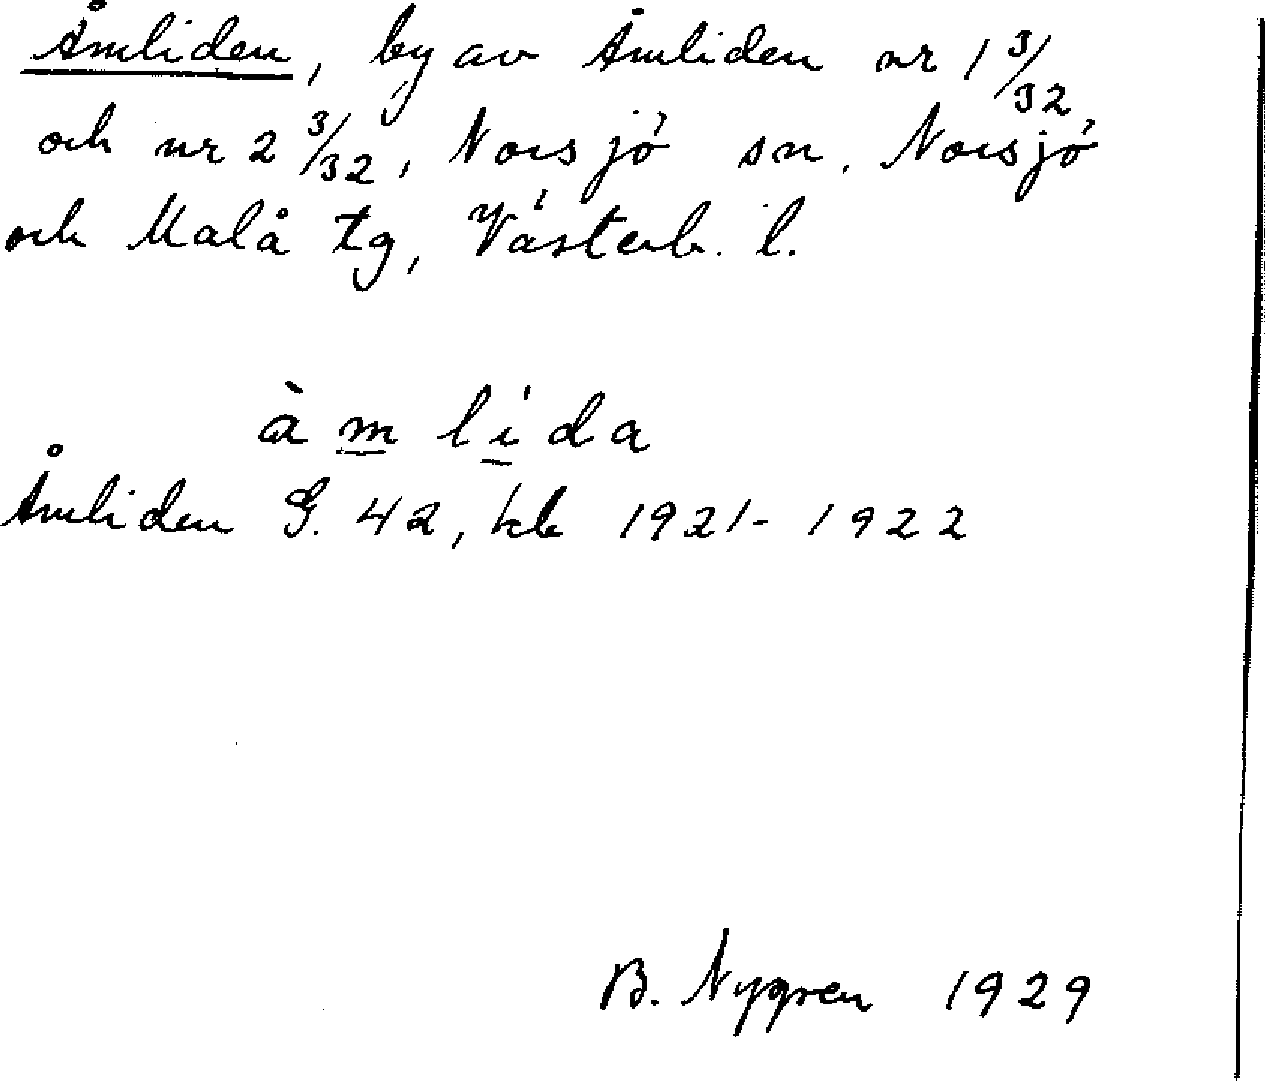 Åmliden, by av Åmliden nr 1 3/32
och nr 2 3/32, Norsjö sn. Norsjö
och Malå tg, Västerb. l.
àmlida
Åmliden G. 42, kb 1921-1922
B. Nygren 1929